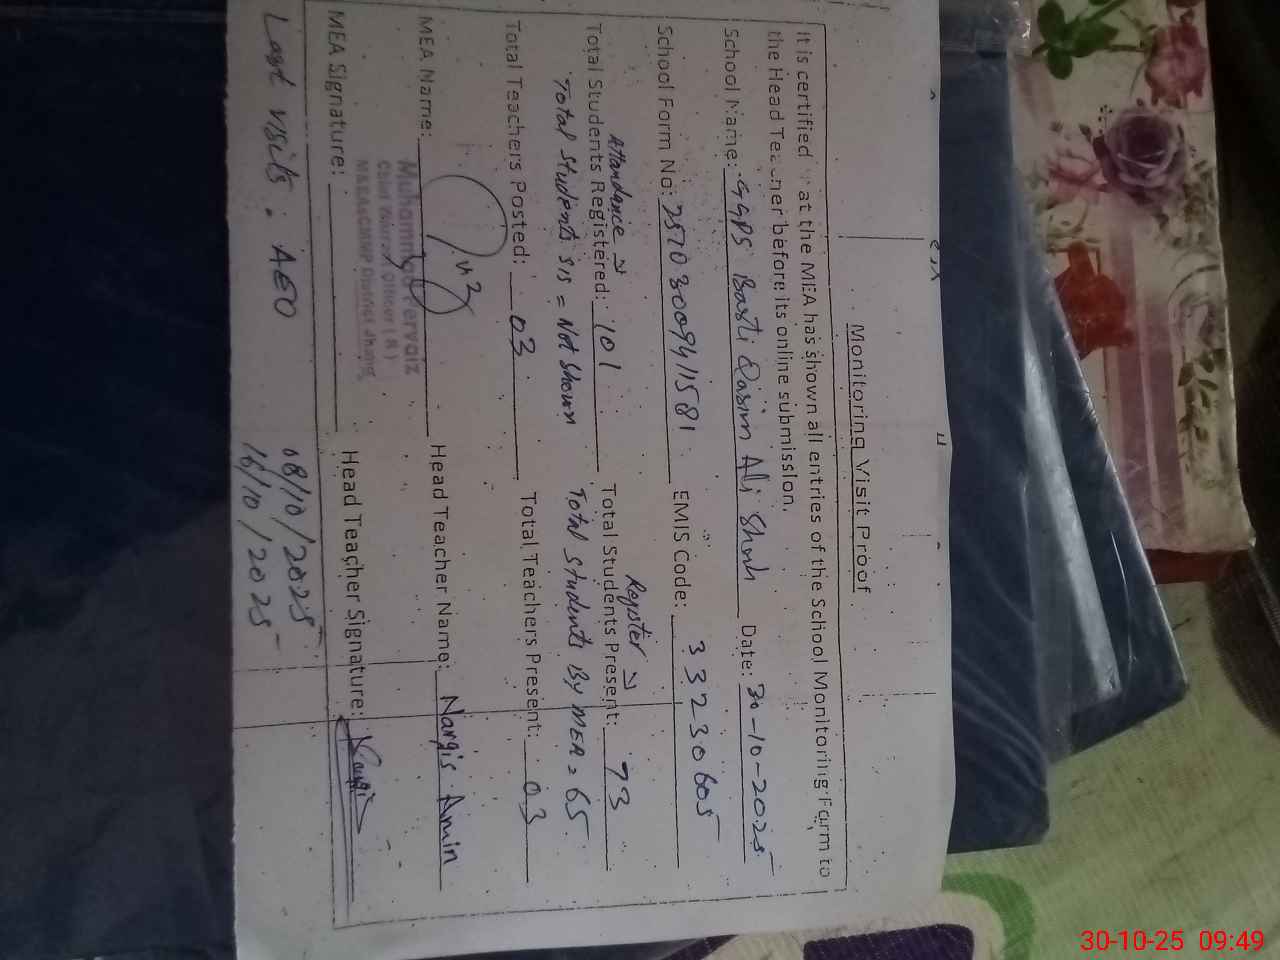 Monitoring Visit Proof
It is certified that the MEA has shown all entries of the School Monitoring Form to
the Head Teacher before its online submission.
School Name: GGPS Basti Qasim Ali Shah Date: 30-10-2025
School Form No: 25703009411581 EMIS Code: 33230605
Attandance Register
Total Students Registered: 101 Total Students Present: 73
Total students SIS = Not shown Total students By MEA = 65
Total Teachers Posted: 03 Total Teachers Present: 03
MEA Name: Head Teacher Name: Nargis Amin
Muhammad Pervaiz
MEA Signature: Head Teacher Signature: Nargis
Last visits: AEO 08/10/2025
16/10/2025
30-10-25 09:49